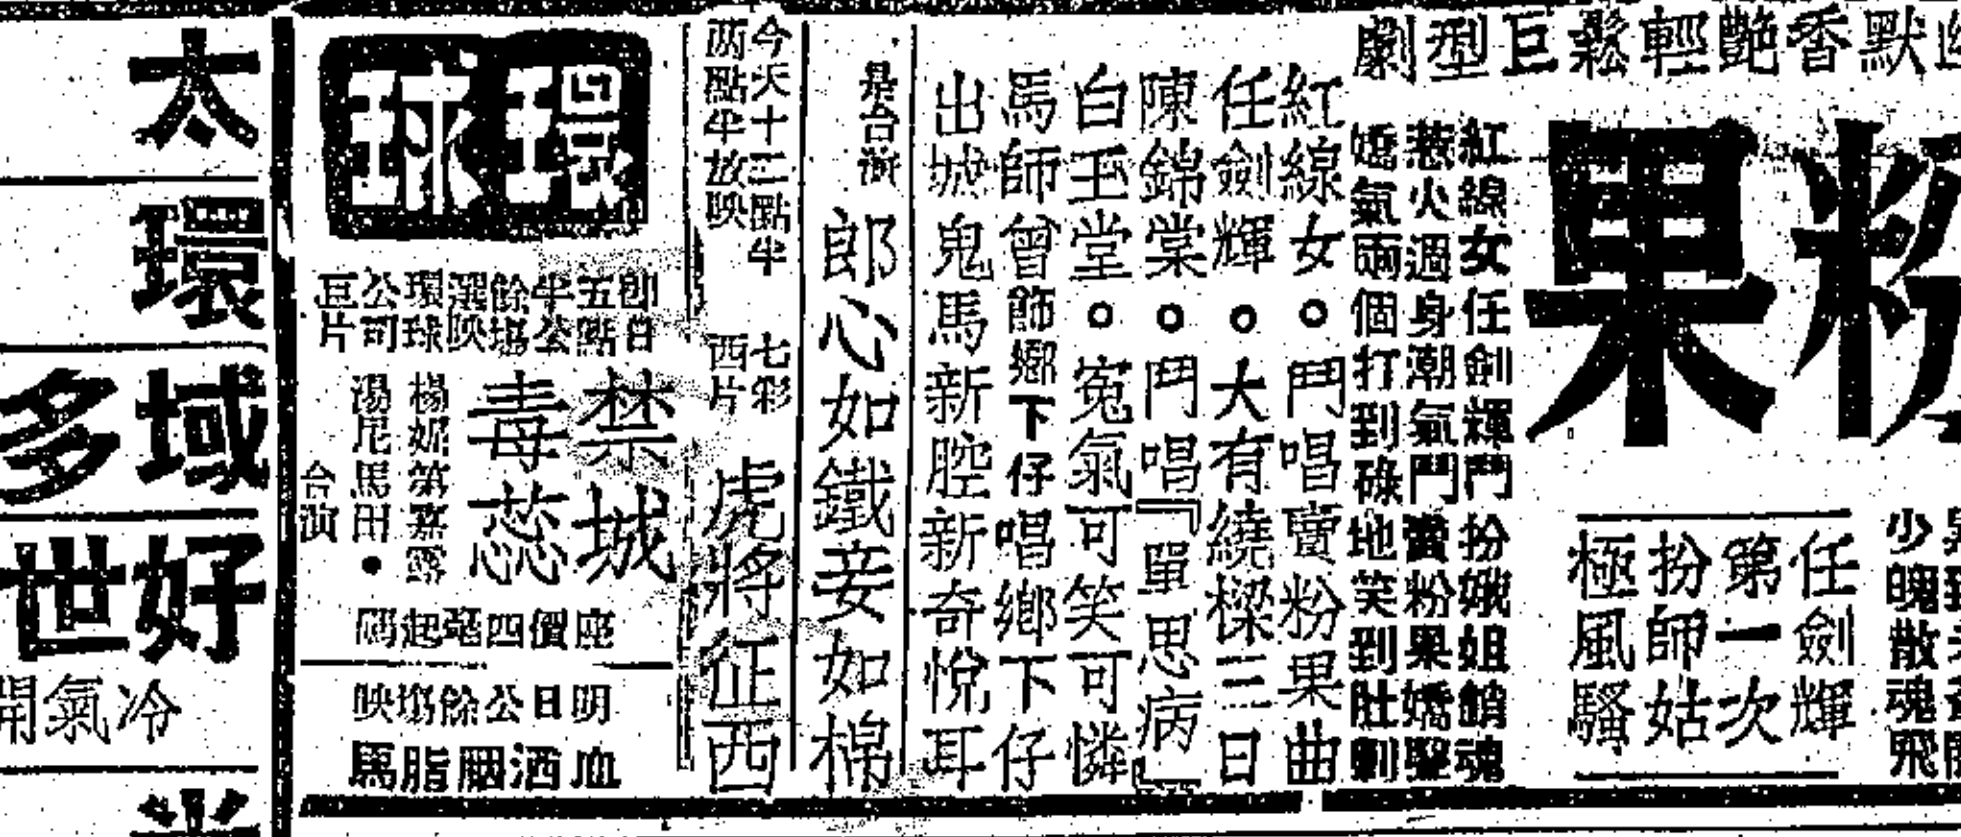 默香艷輕鬆巨型劇
粉果
任劍輝
第一次
扮師姑
極風騷
少魄散魂飛
紅線女任劍輝鬥扮娥姐銷魂
惹火週身潮氣鬥賣粉果嬌聲
嬌氣兩個打到碌地笑到肚刺
紅線女。鬥唱賣粉果曲
任劍輝。大有繞樑三日
陳錦棠。鬥唱『單思病』
白玉堂。寃氣可笑可憐
馬師曾飾鄉下仔唱鄉下仔
出城鬼馬新腔新奇悅耳
郎心如鐵妾如棉
今天十二點半
兩點半放映
七彩
西片
虎將征西
環球
即日五點半公餘場選映環球公司巨片
禁城
毒惄
楊妮第嘉露
湯尼馬田·
合演
座價四毫起碼
明日公餘塲映
血酒胭脂馬
太
環
域多
好世
冷氣開